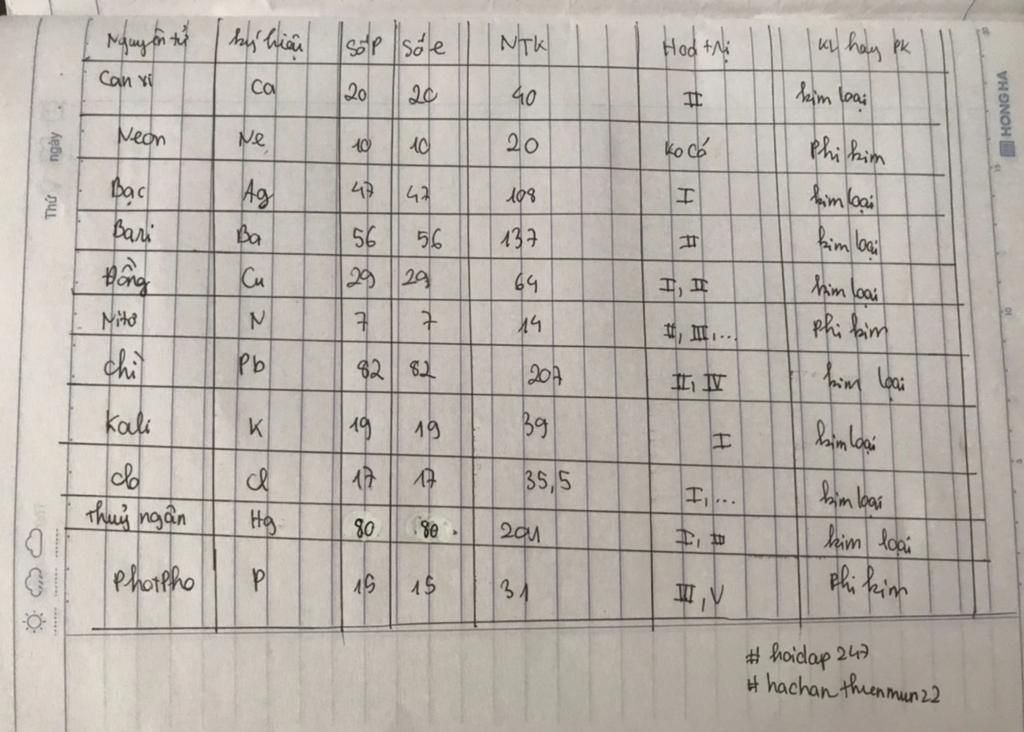 Nguyên tử Ký hiệu Số P Số e NTK Hoá trị KL hay PK
Can xi Ca 20 20 40 II kim loại
Neon Ne 10 10 20 Ko có Phi kim
Bạc Ag 47 47 108 I kim loại
Bari Ba 56 56 137 II kim loại
Đồng Cu 29 29 64 I, II kim loại
Nitơ N 7 7 14 II, III,... Phi kim
Chì Pb 82 82 207 II, IV kim loại
Kali K 19 19 39 I kim loại
Clo Cl 17 17 35,5 I,... kim loại
Thuỷ ngân Hg 80 80 201 I, II kim loại
Photpho P 15 15 31 III, V Phi kim
# hoidap 247
# hachanthienmun22
Thứ ngày
HONG HA